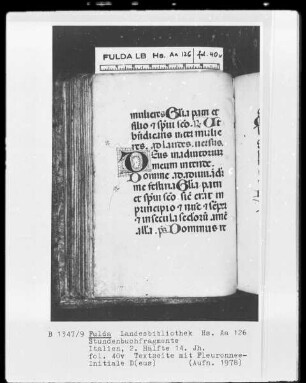 FULDA LB Hs. Aa 126 fol. 40v
mulieres Glia patri et
filio et spiui sco. Ut
tus in mulie
res. ad laudes. versus.
Deus in adiutorium
meum intende.
Domine ad
me festina Glia patri
et spiui sco sic erat in
principio et nunc et semp
et in secula seclorum ame
alla. ps Dominus re
B 1347/9 Fulda Landesbibliothek Hs. Aa 126
Stundenbuchfragmente
Italien, 2. Hälfte 14. Jh.
fol. 40v Textseite mit Fleuronnee-
Initiale D(eus) (Aufn. 1978)